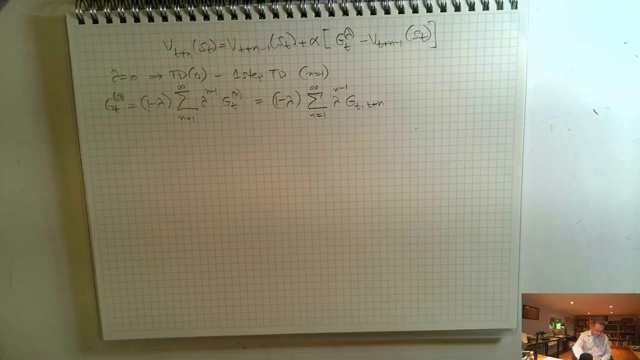 V_{t+n}(S_t) = V_{t+n-1}(S_t) + α [ G_t^{(λ)} - V_{t+n-1}(S_t) ]
λ=0 → TD(0) - 1 step TD (n=1)
G_t^{(λ)} = (1-λ) ∑_{n=1}^{∞} λ^{n-1} G_t^{(n)} = (1-λ) ∑_{n=1}^{∞} λ^{n-1} G_{t,t+n}